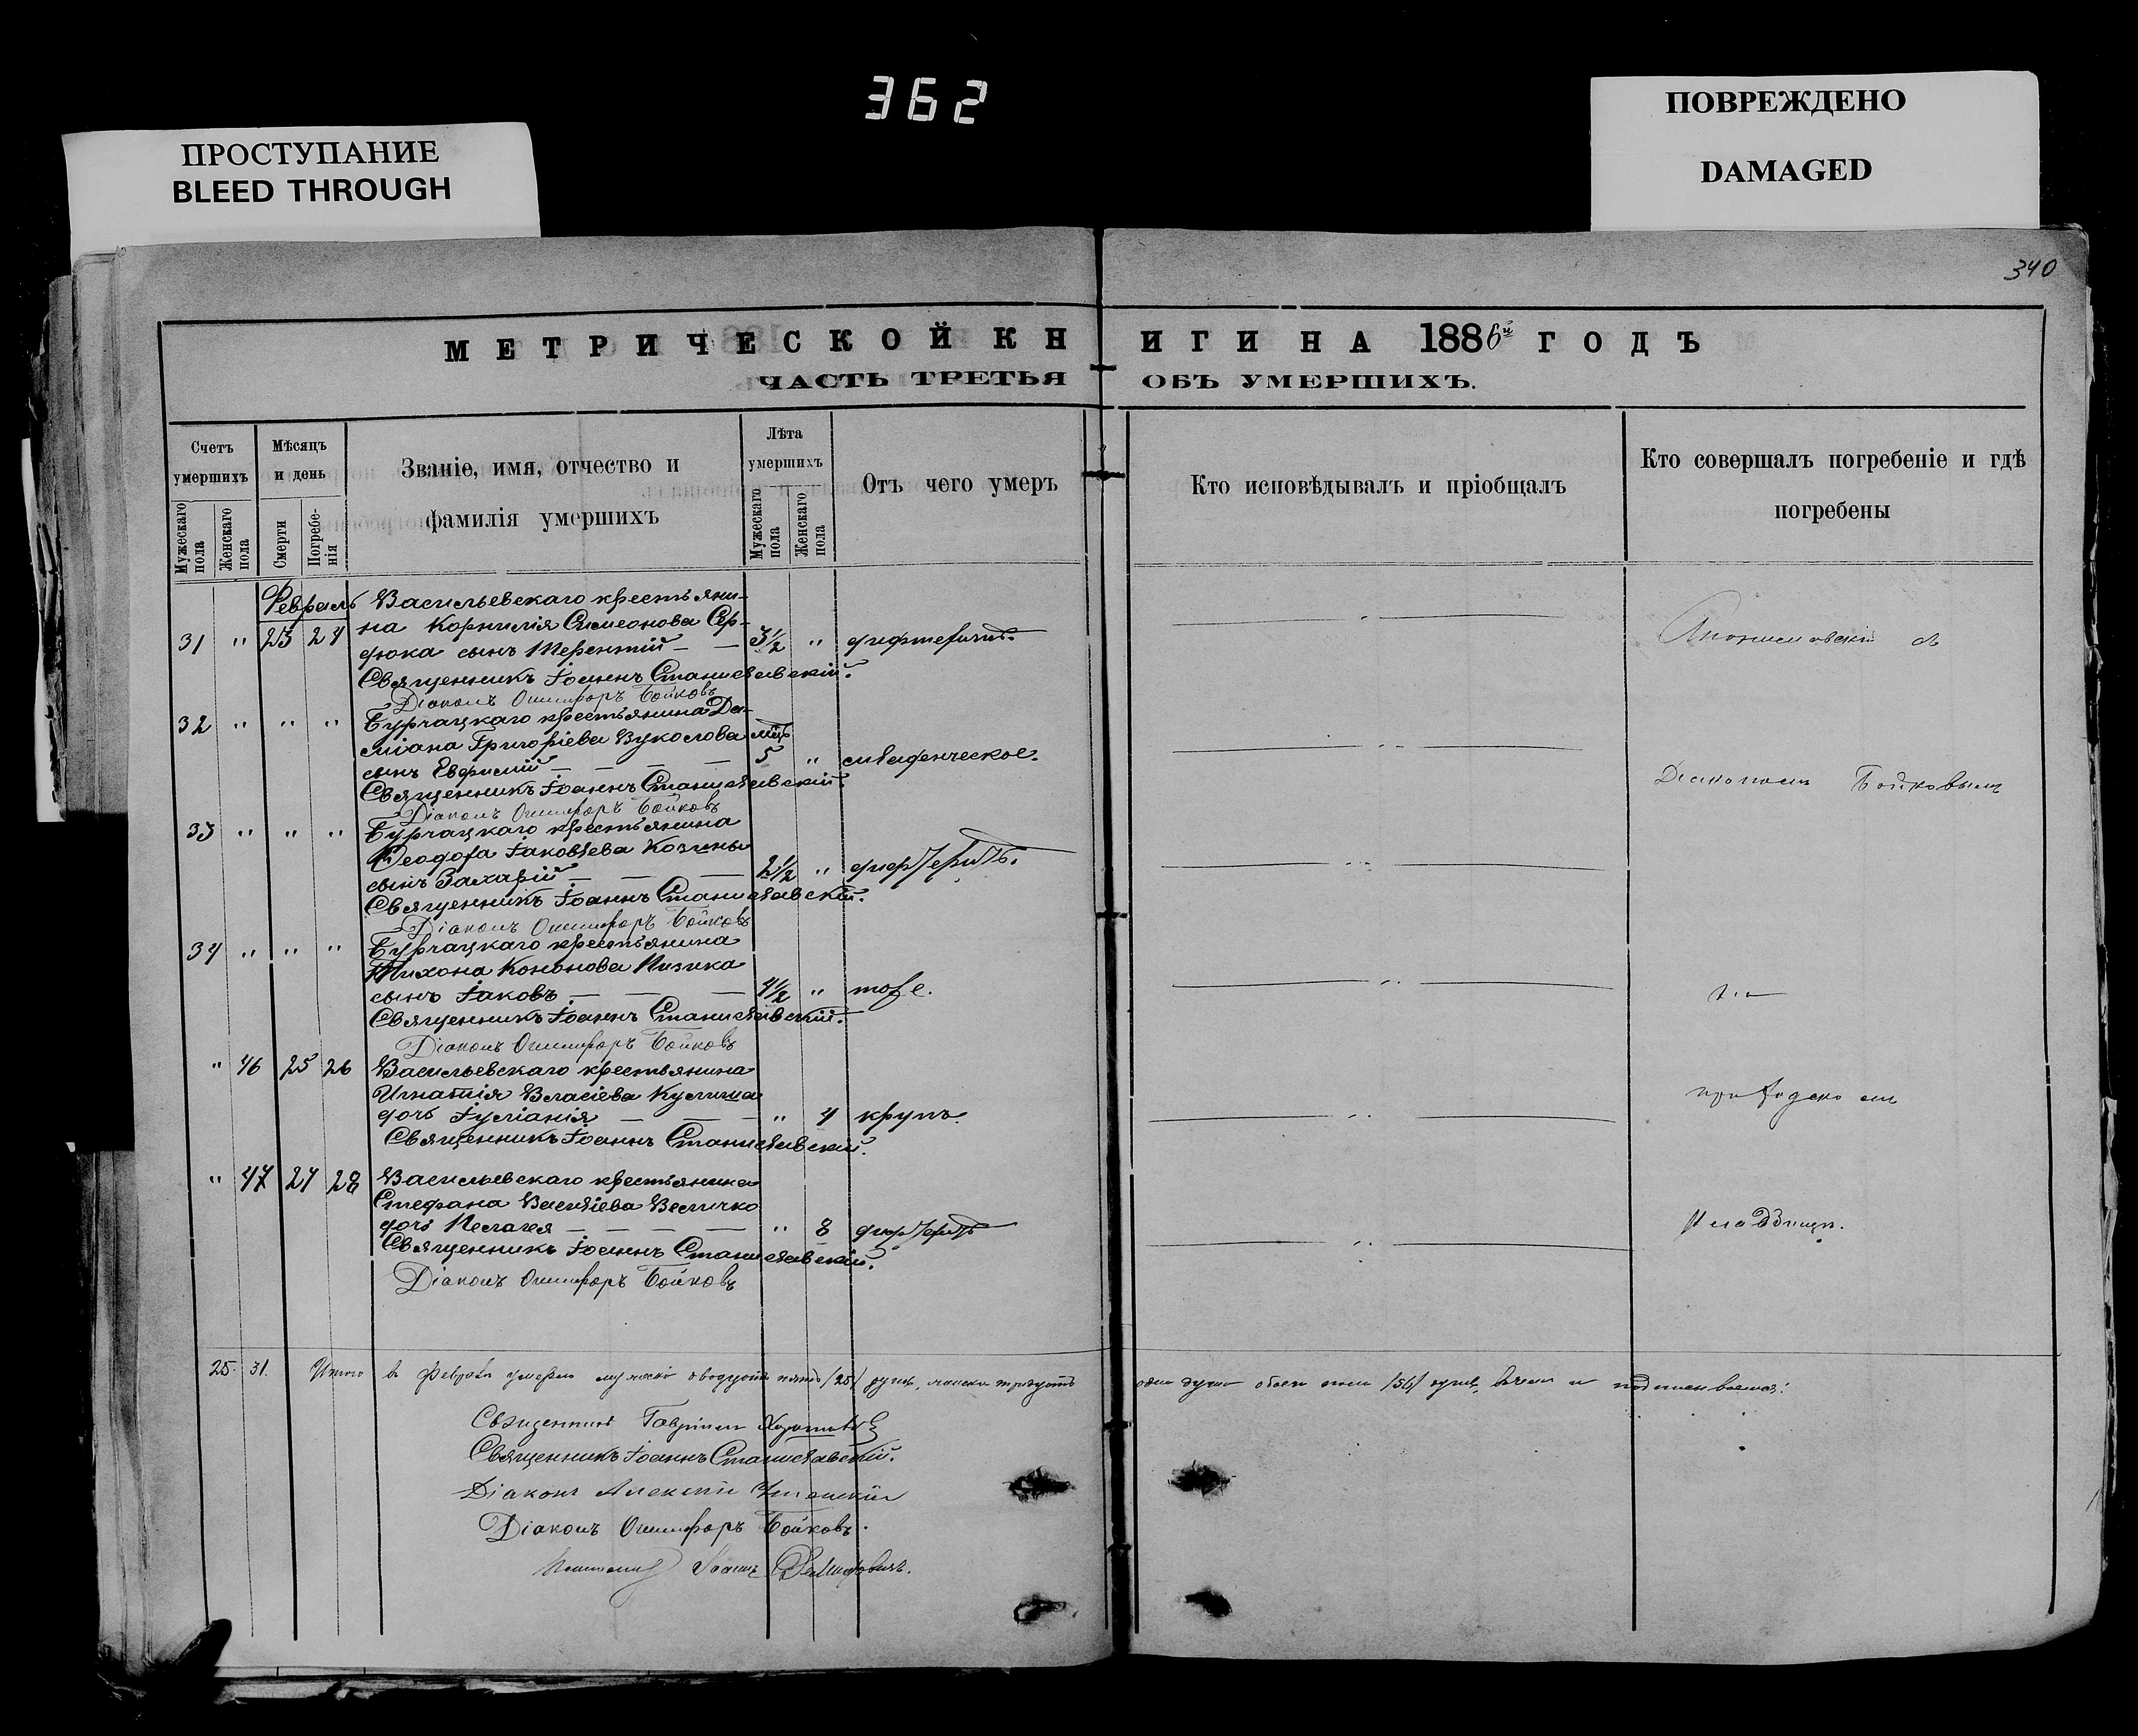 362
ПРОСТУПАНИЕ
BLEED THROUGH
ПОВРЕЖДЕНО
DAMAGED
340
МЕТРИЧЕСКОЙ КНИГИ НА 1886й ГОДЪ
ЧАСТЬ ТРЕТЬЯ ОБЪ УМЕРШИХЪ.
Счетъ умершихъ
Мужескаго пола
Женскаго пола
Мѣсяцъ и день
Смерти
Погребе-нія
Званіе, имя, отчество и
фамилія умершихъ
Лѣта умершихъ
Мужескаго пола
Женскаго пола
Отъ чего умеръ
Кто исповѣдывалъ и пріобщалъ
Кто совершалъ погребеніе и гдѣ
погребены
Февраль Васильевскаго крестьяни-
на Корнилія Симеонова Сер-
31 " 23 24 дюка сынъ Терентій — — 3½ " дифтеритъ.
Священникъ Іоаннъ Станиславскій.
Діаконъ Онисифоръ Бойковъ
32 " " " Бурчацкаго крестьянина Да-
міана Григоріева Вуколова
сынъ Евфимій — — — — 5 " младенческое.
Священникъ Іоаннъ Станиславскій.
Діаконъ Онисифоръ Бойковъ
Діакономъ Бойковымъ
33 " " " Бурчацкаго крестьянина
Ѳеодора Іаковлева Козины
сынъ Захарій — — — 2½ " дифтеритъ.
Священникъ Іоаннъ Станиславскій.
Діаконъ Онисифоръ Бойковъ
34 " " " Бурчацкаго крестьянина
Тихона Кононова Пизика
сынъ Іаковъ — — — 4½ " тоже.
Священникъ Іоаннъ Станиславскій.
Діаконъ Онисифоръ Бойковъ
" 46 25 26 Васильевскаго крестьянина
Игнатія Власіева Кулиша
дочь Іуліанія — — — " 4 крупъ.
Священникъ Іоаннъ Станиславскій.
на приходскомъ
" 47 27 28 Васильевскаго крестьянина
Стефана Василіева Величко
дочь Пелагея — — — — " 8 дифтеритъ
Священникъ Іоаннъ Станиславскій.
Діаконъ Онисифоръ Бойковъ
кладбищѣ.
25. 31. Итого въ Февралѣ умерло мужеск. двадцать пять /25/ душъ, женска тридцать одна душа обоего пола /56/ душъ,
Священникъ Гавріилъ
Священникъ Іоаннъ Станиславскій.
Діаконъ Алексій
Діаконъ Онисифоръ Бойковъ.
Іоаннъ